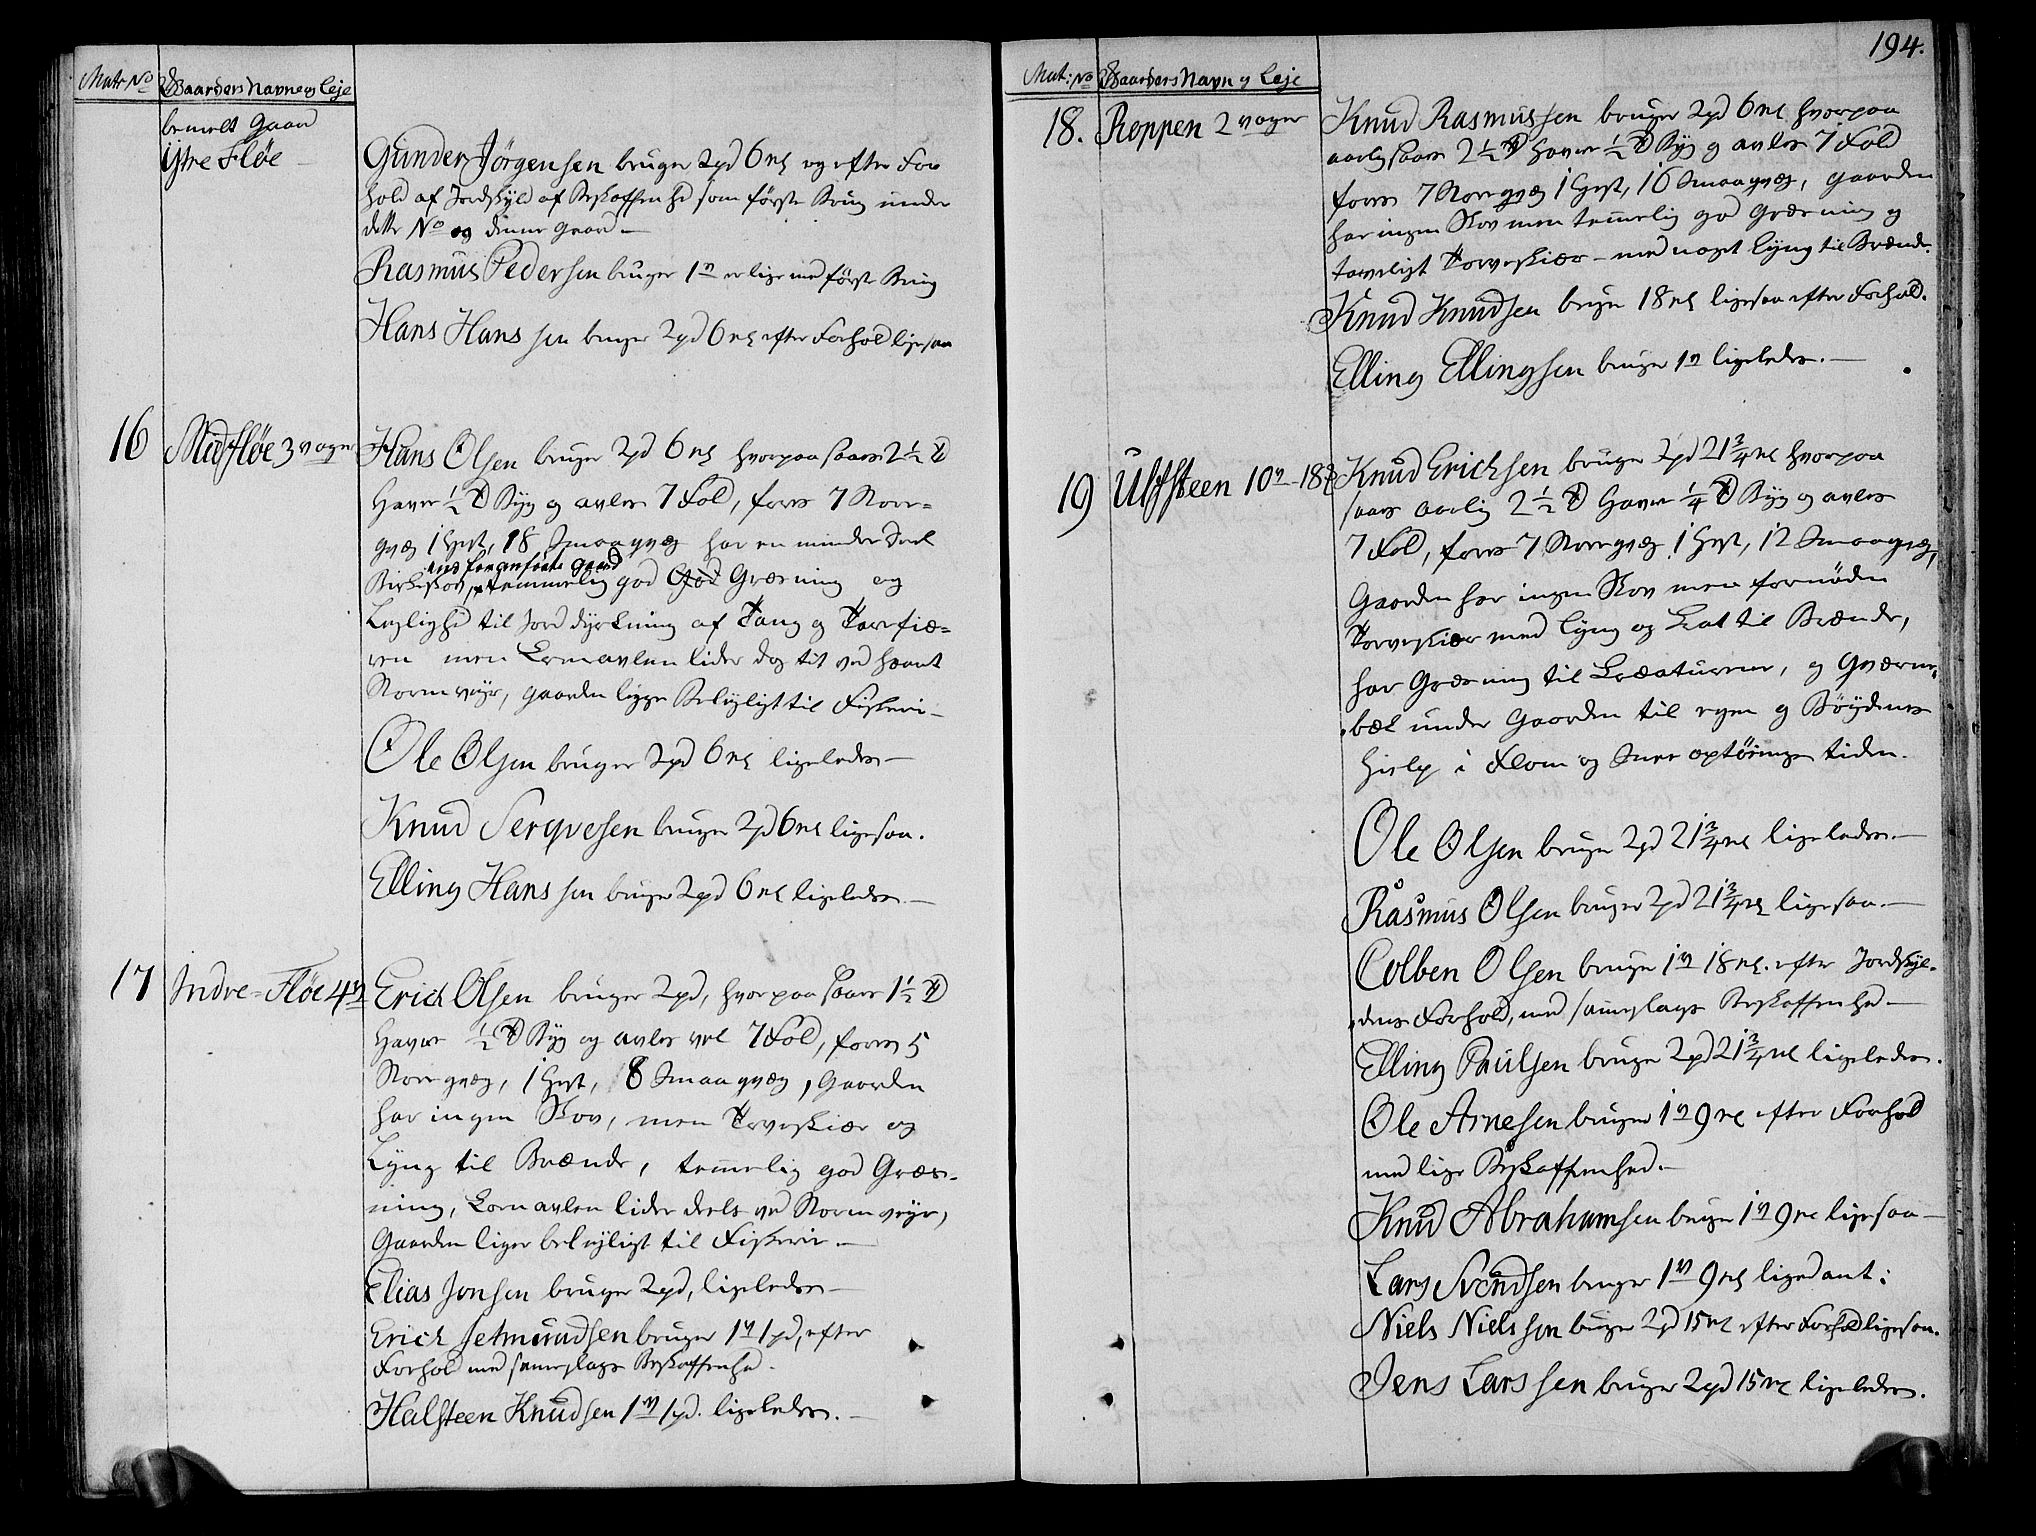 Matr No Gaardens Navne og Leje
bemelt Gaard
Ytre Fløe
Gunder Jörgensen bruger 2pd 6 mk og efter For
hold af Jordskyld af Beskaffenhed som förste Brug under
dette No og denne Gaard —
Rasmus Pedersen bruger 1 v er lige med förste Brug
Hans Hanssen bruger 2pd 6 mk efter Forhold ligesaa
16 Midfløe 3 voger Hans Olsen bruger 2pd 6 mk hvorpaa saaes 2½ Td
Havre ½ Td Byg og avles 7 Fold, föres 7 Stor-
qvæg 1 Hest, 18 Smaaqvæg har en mindre Deel
Birkeskov, temmelig god God Græsning og
Leylighed til Jorddyrkning af Tang og Tørvejor-
den men Kornavlen lider dog tit ved haardt
Stormveyr, Gaarden ligger Beleyligt til Fiskerie —
Ole Olsen bruger 2pd 6 mk ligeledes —
Knud Serqvesen bruger 2pd 6 mk ligesaa.
Elling Hanssen bruger 2pd 6 mk ligeledes. —
17 Indre-Fløe 4 v Erich Olsen bruger 2pd, hvorpaa saaes 1½ Td
Havre ½ Td Byg og avles vel 7 Fold, föres 5
Storqvæg, 1 Hest, 8 Smaaqvæg, Gaarden
har ingen Skov, men Torveskiær og
Lyng til Brænde, temelig god Græs-
ning, Kornavlen lider deels ved Stormveyr,
Gaarden liger beleyligt til Fiskerie. —
Elias Jonsen bruger 2pd, ligeledes —
Erich Setmundsen bruger 1 v 1 pd, efter
Forhold med sameslags Beskaffenhed.
Halsteen Knudsen 1 v 1 pd. ligeledes. —
194.
Mat: No Gaardens Navn og Leje
18. Roppen 2 voger Knud Rasmussen bruger 2pd 6 mk hvorpaa
aarlig saaes 2½ Td Havre ½ Td Byg og avles 7 Fold
föres 7 Storqvæg 1 Hest, 16 Smaaqvæg, Gaarden
har ingen Skov men temelig god Græsning og
Torveskiær – med noget Lyng til Brænde.
Knud Knudsen bruger 18 mk ligesaa efter Forhold.
Elling Ellingsen bruger 1 v ligeledes. —
19 Ulfsteen 10 v – 18 Knud Erichsen bruger 2pd 21¾ mk hvorpaa
saaes aarlig 2½ Td Havre ¼ Td Byg og avles
7 Fold, föres 7 Storqvæg 1 Hest, 12 Smaaqvæg,
Gaarden har ingen Skov men fornöden
Torveskiær med Lyng og Krat til Brænde,
har Græsning til Kreaturene, og Qværne-
bæk under Gaarden til egen og Böygdens
Hielp i Flom og Snee optönings tiden.
Ole Olsen bruger 2pd 21¾ mk ligeledes. —
Rasmus Olsen bruger 2pd 21¾ mk ligesaa. —
Colben Olsen bruger 1 v 18 mk. efter Jordskyl-
dens Forhold, med sameslags Beskaffenhed —
Elling Paulsen bruger 2pd 21¾ mk ligeledes.
Ole Arnesen bruger 1 v 9 mk efter Forhold
med lige Beskaffenhed. —
Knud Abrahamsen bruger 1 v 9 mk ligesaa —
Lars Svendsen bruger 1 v 9 mk ligedant;
Niels Nielssen bruger 2pd 15 mk efter Forhold ligesaa.
Jens Larssen bruger 2pd 15 mk ligeledes.